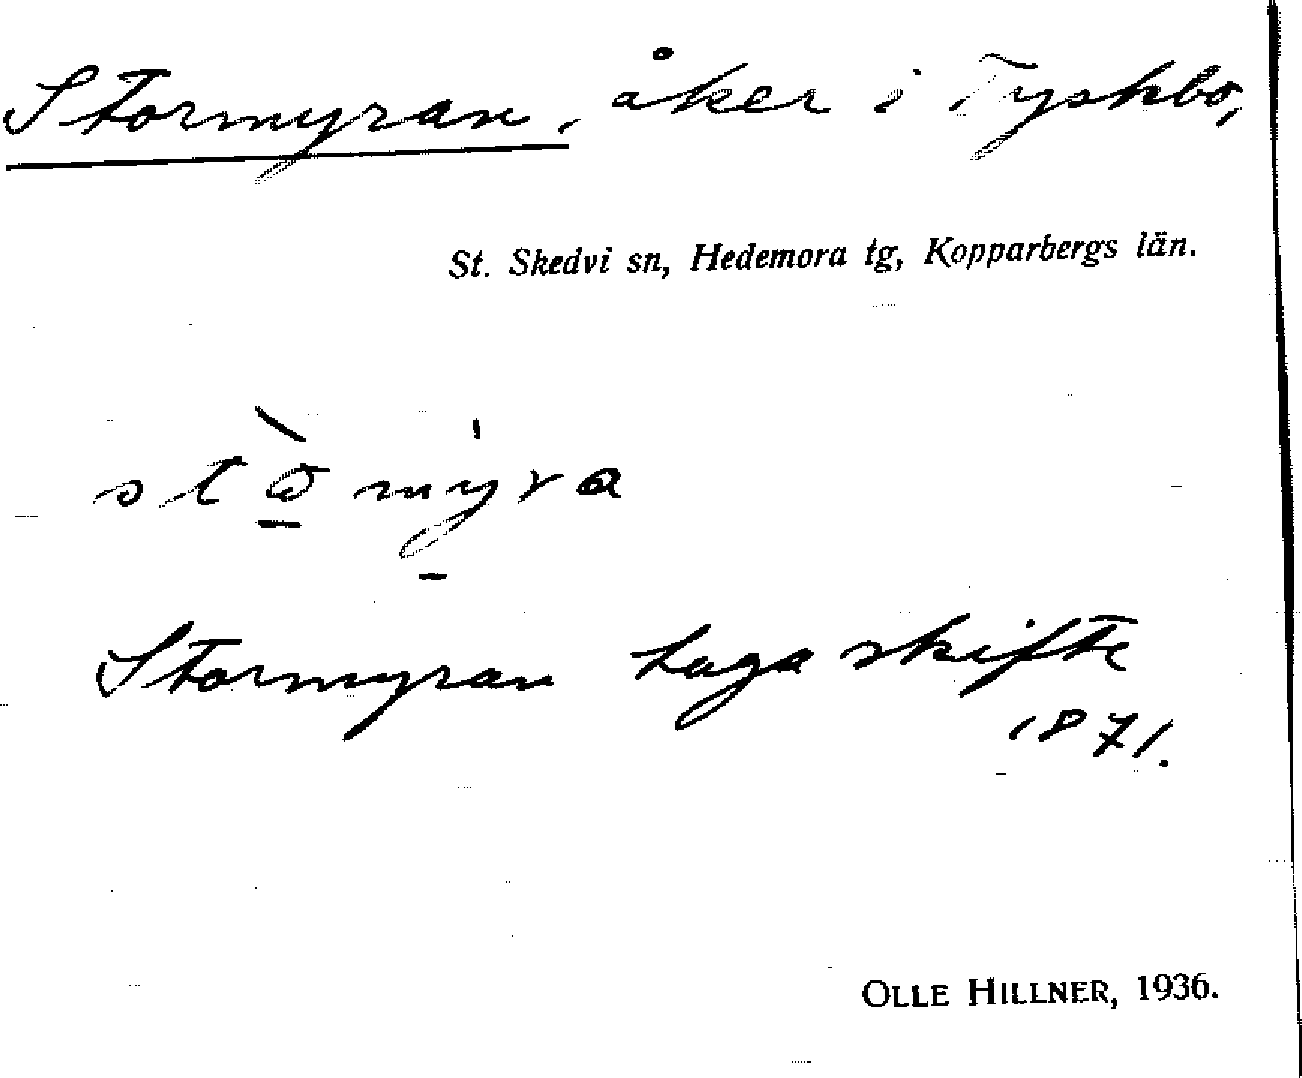 Stormyran, åker i Tyskbo,
St. Skedvi sn, Hedemora tg, Kopparbergs län.
Stormyran Laga skifte
1871.
OLLE HILLNER, 1936.